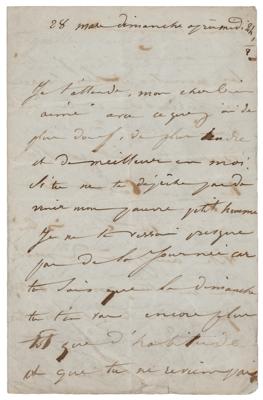 28 mars dimanche après midi 2h ½
Je t'attends, mon cher bien
aimé avec ce que j'ai de
plus doux, de plus tendre
et de meilleur en moi.
Si tu ne te dépêches pas de
venir mon pauvre petit homme
je ne te verrai presque
pas de la journée car
tu sais que le dimanche
tu t'en vas encore plus
tôt que d'habitude
et que tu ne reviens pas